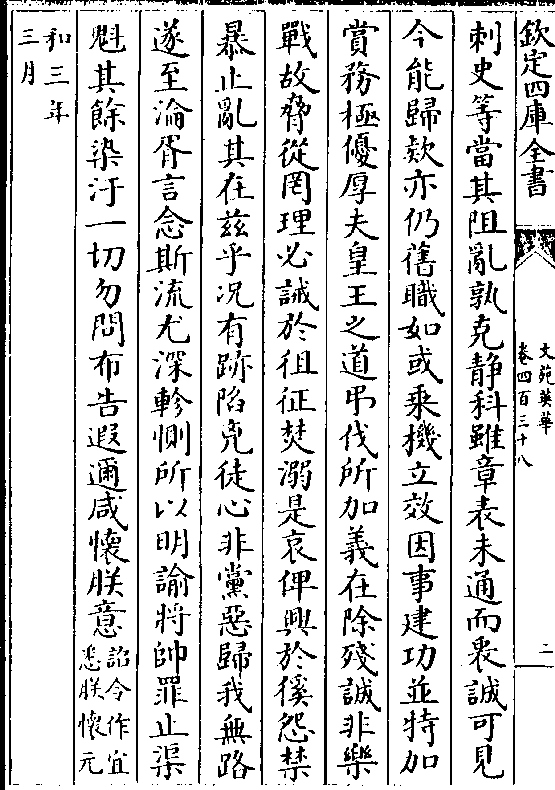 欽定四庫全書
文苑英華
卷四百三十八
二
刺史等當其阻亂孰克靜科雖章表未通而衷誠可見
今能歸欵亦仍舊職如或乗機立效因事建功並特加
賞務極優厚夫皇王之道弔伐所加義在除殘誠非樂
戰故脅從罔理必誡於徂征焚溺是哀俾興於徯怨禁
暴止亂其在兹乎况有跡陷兇徒心非黨惡歸我無路
遂至淪胥言念斯流尤深軫惻所以明諭將帥罪止渠
魁其餘染汙一切勿問布告遐邇咸懷朕意詔令作宜
悉朕懷元
和三年
三月